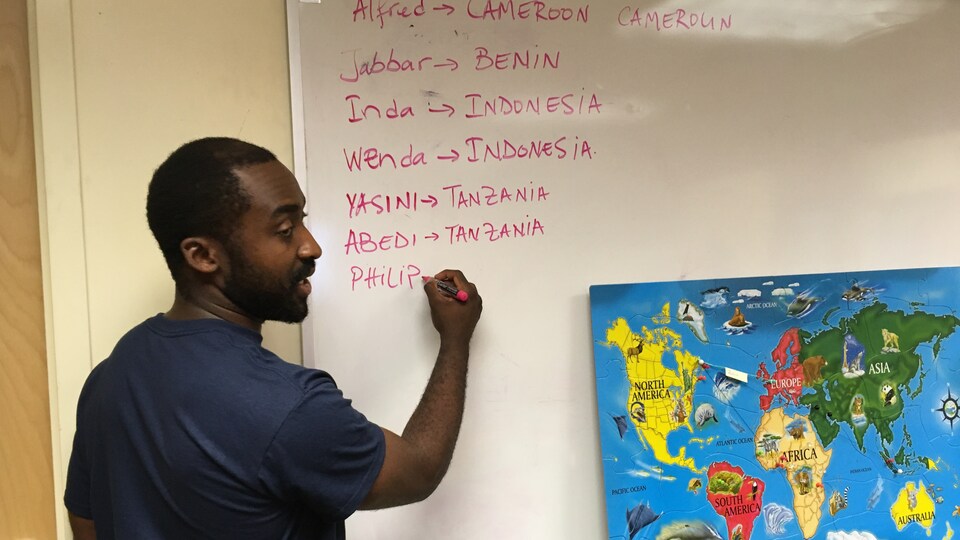 Alfred → CAMEROON CAMEROUN
Jabbar → BENIN
Inda → INDONESIA
Wenda → INDONESIA.
YASINI → TANZANIA
ABEDI → TANZANIA
PHILIP
ARCTIC OCEAN
NORTH
AMERICA
EUROPE
ASIA
ATLANTIC OCEAN
AFRICA
PACIFIC OCEAN
INDIAN OCEAN
SOUTH
AMERICA
AUSTRALIA